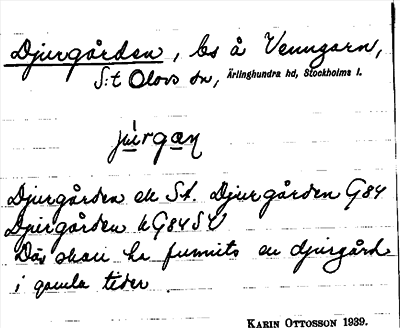 Djurgården, bs å Venngarn,
S:t Olovs sn, Ärlinghundra hd, Stockholms l.
júrgæn
Djurgården ek St. Djurgården G84
Djurgården hG84SV
Där skall ha funnits en djurgård
i gamla tider.
KARIN OTTOSSON 1939.